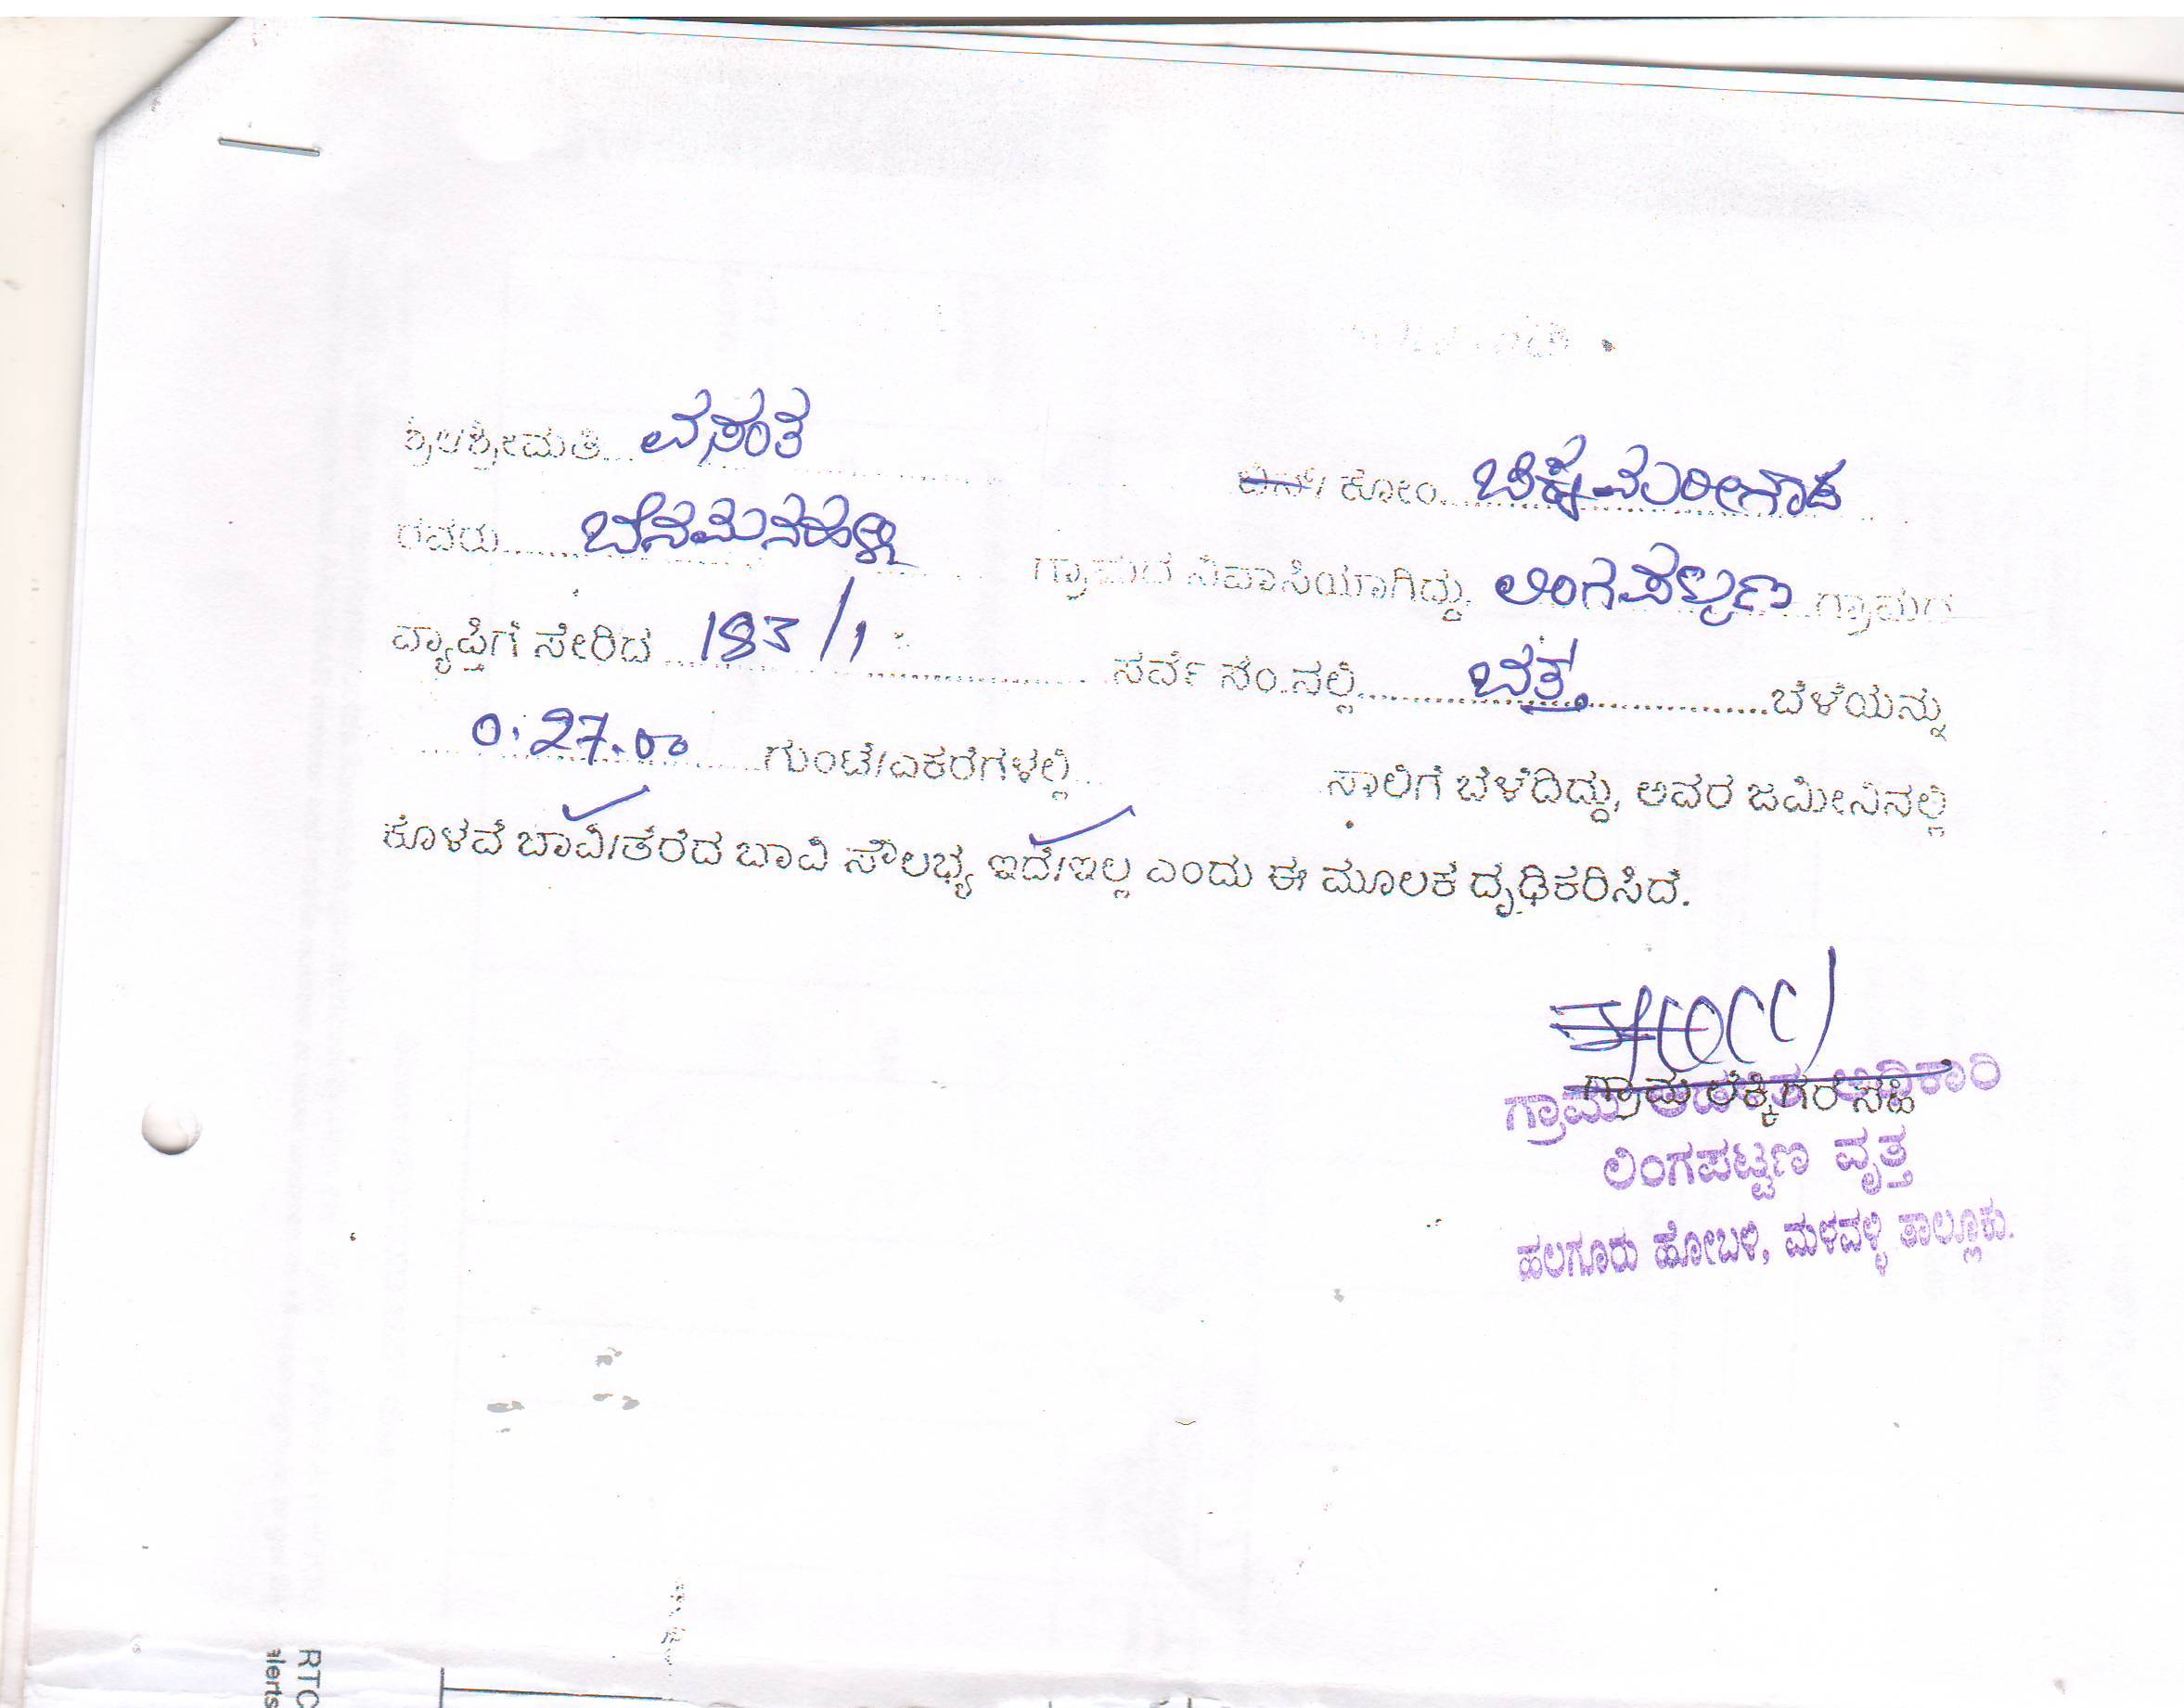 ಶ್ರೀ/ಶ್ರೀಮತಿ.... ವಸಂತ .................. ಬಿನ್/ ಕೋಂ.... ಚಿಕ್ಕಮರೀಗೌಡ
ರವರು........ ಬೆನಮನಹಳ್ಳಿ ........ ಗ್ರಾಮದ ನಿವಾಸಿಯಾಗಿದ್ದು, ಲಿಂಗಪಟ್ಟಣ ಗ್ರಾಮದ
ವ್ಯಾಪ್ತಿಗೆ ಸೇರಿದ ..... 183/1 .................. ಸರ್ವೆ ನಂ.ನಲ್ಲಿ........ ಬತ್ತ ..................ಬೆಳೆಯನ್ನು
0.27.00 ....ಗುಂಟೆ/ಎಕರೆಗಳಲ್ಲಿ.... ಸಾಲಿಗೆ ಬೆಳೆದಿದ್ದು, ಅವರ ಜಮೀನಿನಲ್ಲಿ
ಕೊಳವೆ ಬಾವಿ/ತೆರೆದ ಬಾವಿ ಸೌಲಭ್ಯ ಇದೆ/ಇಲ್ಲ ಎಂದು ಈ ಮೂಲಕ ದೃಢಿಕರಿಸಿದೆ.
ಗ್ರಾಮ ಲೆಕ್ಕಿಗರ ಸಹಿ
ಗ್ರಾಮ ಆಡಳಿತ ಅಧಿಕಾರಿ
ಲಿಂಗಪಟ್ಟಣ ವೃತ್ತ
ಹಲಗೂರು ಹೋಬಳಿ, ಮಳವಳ್ಳಿ ತಾಲ್ಲೂಕು.
RTC
alerts